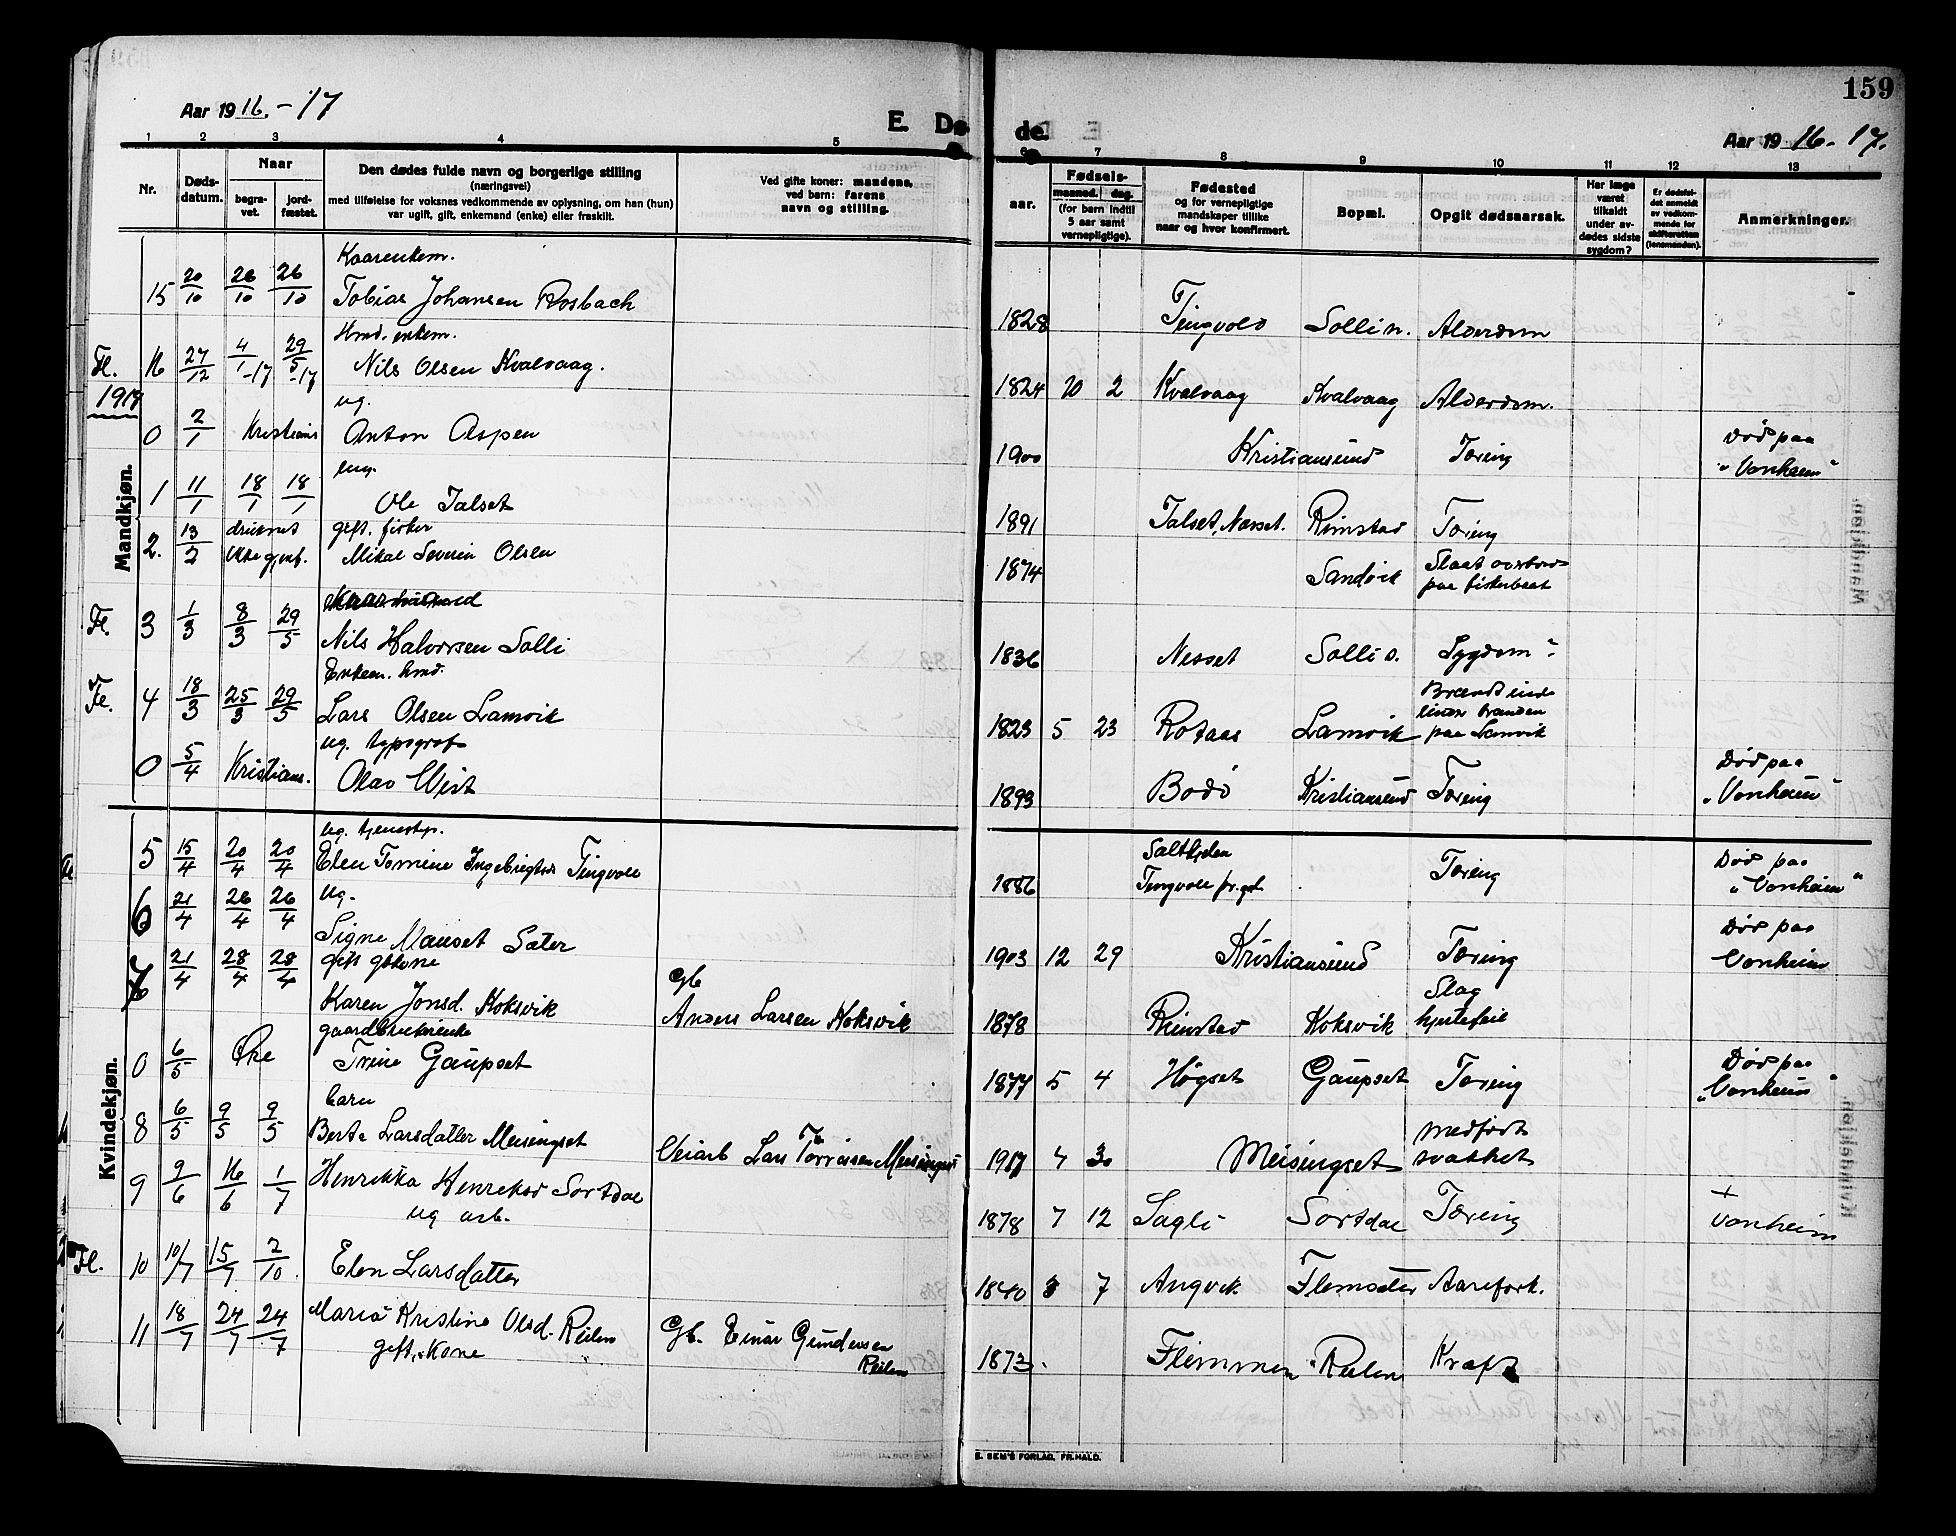 159
Aar 1916.-17
E. Døde.
Aar 1916-17.
1 2 3 4 5 6 7 8 9 10 11 12 13
Nr.
Døds-datum.
Naar
begra-vet.
jord-fæstet.
Den dødes fulde navn og borgerlige stilling
(næringsvei)
med tilføielse for voksnes vedkommende av oplysning, om han (hun)
var ugift, gift, enkemand (enke) eller fraskilt.
Ved gifte koner: mandens,
ved barn: farens
navn og stilling.
Fødsels-
aar.
maaned. dag.
(for børn indtil
5 aar samt
vernepligtige).
Fødested
og for vernepligtige
mandskaper tillike
naar og hvor konfirmert.
Bopæl.
Opgit dødsaarsak.
Har læge
været
tilkaldt
under av-
dødes sidste
sygdom?
Er dødsfal-
det anmeldt
av vedkom-
mende for
skifteretten
(lensmanden).
Anmerkninger.
Mandkjøn.
Kaarenkem.
15 20/10 26/10 26/10 Tobias Johansen Rosbach 1828 Tingvold Solli n. Alderdom
Hmd. enkem.
Fl. 16 27/12 4/1-17 29/5-17 Nils Olsen Kvalvaag. 1824 10 2 Kvalvaag Kvalvaag Alderdom.
1917
ug.
0 2/1 Kristians Anton Aspen 1900 Kristiansund Tæring Død paa "Vonheim"
ung.
1 11/1 18/1 18/1 Ole Talset 1891 Talset, Nesset. Rimstad Tæring
2. 13/2 druknet gift. fisker
ikke gjenf. Mikal Severin Olsen 1874 Sandvik Slaat overbord
paa fiskebaat
Fl. 3 1/3 8/3 29/5 Nils Halvorsen Solli 1836 Nesset Solli ø. Sygdom?
Enkem. hmd.
Fl. 4 18/3 25/3 29/5 Lars Olsen Lamvik 1823 5 23 Rotaas Lamvik Brændt inde
under branden
paa Lamvik
ug. typograf
0 5/4 Kristians. Olav Wist 1893 Bodø Kristiansund Tæring Død paa
"Vonheim"
Kvindekjøn.
ug. tjenestp.
5 15/4 20/4 20/4 Elen Tomine Ingebrigtsd Tingvoll 1886 Saltkjelen
Tingvoll pr.gd. Tæring Død paa
"Vonheim"
ug.
6 21/4 26/4 26/4 Signe Mauset Sæter 1903 12 29 Kristiansund Tæring Død paa
Vonheim
gift gbkone
7 21/4 28/4 28/4 Karen Jonsd. Koksvik Gb
Anders Larsen Koksvik 1878 Rimstad Koksvik Slag
hjertefeil
gaardbrukerenke
0 6/5 Øre Trine Gaupset 1877 5 4 Høgset Gaupset Tæring Død paa
"Vonheim"
barn
8 6/5 9/5 9/5 Berte Larsdatter Meisingset Veiarb Lars Torresen Meisingset 1917 4 30 Meisingset medfødt
svakhet
9 9/6 16/6 1/7 Henrikka Henriksd Sortdal
ug arb. 1878 7 12 Sagli Sortdal Tæring +
Vonheim
Fl. 10 10/7 15/7 2/10 Elen Larsdatter 1840 3 7 Angvik Flemsæter Aarefork.
11 18/7 24/7 24/7 Maria Kristine Olsd. Reilen
gift, kone Gb. Einar Gundersen
Reilen 1873. Flemmen Reilen Kræft
E. SEM'S FORLAG, FR.HALD.